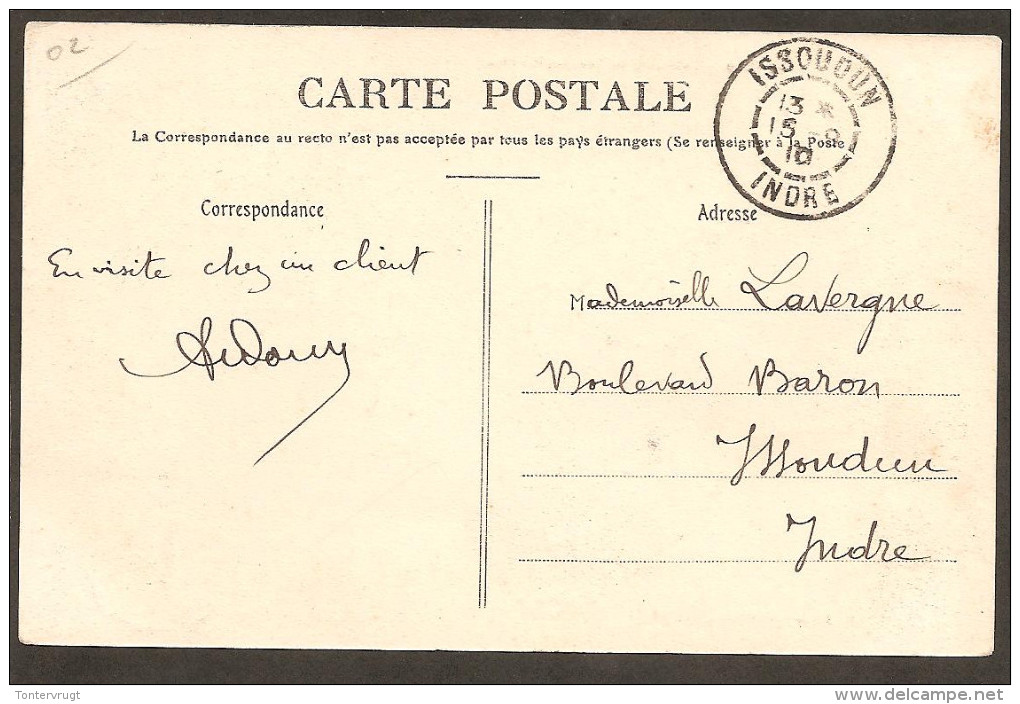 02
CARTE POSTALE
La Correspondance au recto n'est pas acceptée par tous les pays étrangers (Se renseigner à la Poste
ISSOUDUN
13 *
15 -9
10
INDRE
Correspondance
En visite chez un client
Adresse
Mademoiselle Lavergne
Boulevard Baron
Issoudun
Indre
Tontervrugt
www.delcampe.net